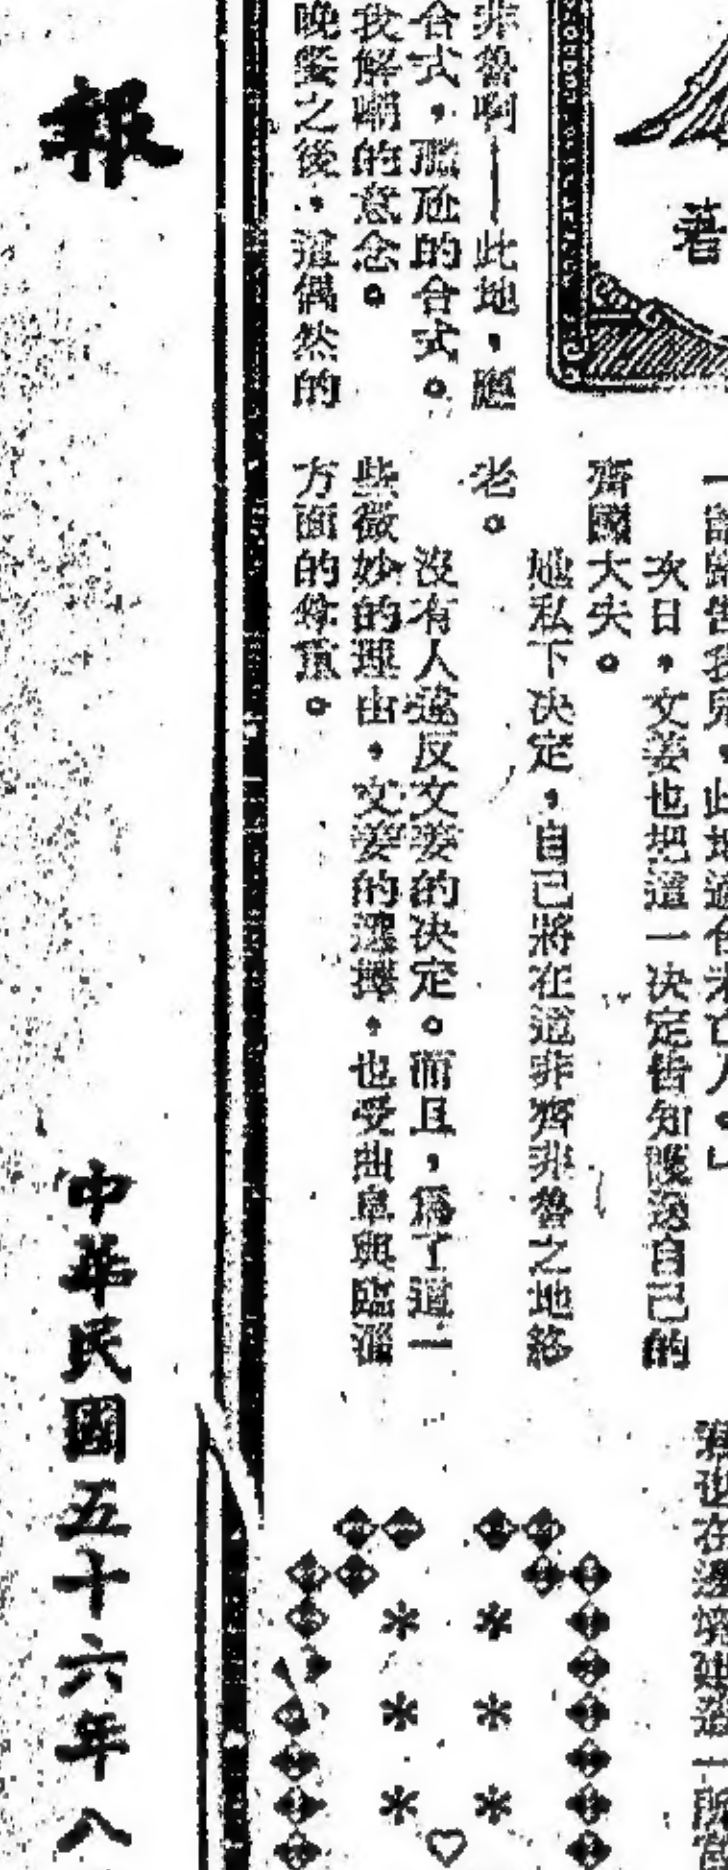 著
非魯啊——此地,應
合式,尷尬的合式。
我解嘲的意念。
晚餐之後,這偶然的
次日,文姜也把這一決定告知護送自己的
齊國大夫。
她私下决定,自己將在這非齊非魯之地終
老。
沒有人違反文姜的决定。而且,為了這一
些微妙的理由,文姜的選擇,也受曲阜與臨淄
方面的尊重。
報
中華民國五十六年八